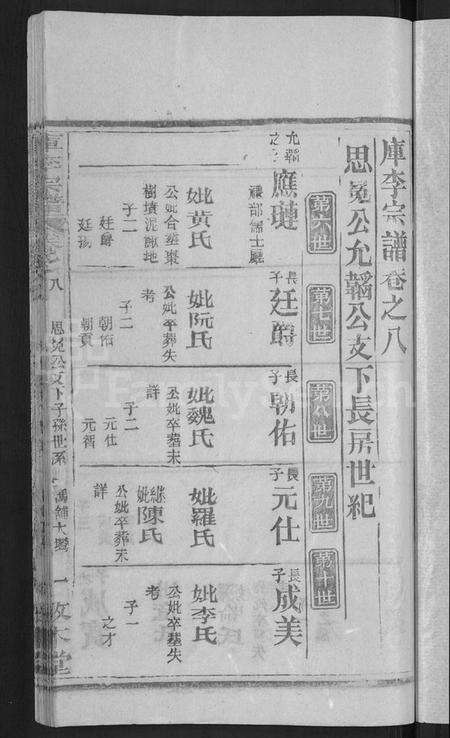 庫李宗譜卷之八
思冕公允韜公支下長房世紀
第六世
第七世
第八世
第九世
第十世
允韜之子
應璉
禮部儒士
妣黃氏
公妣合塟
樹墳
子二
廷爵
長子
廷爵
妣阮氏
公妣卒葬失考
子二
朝佑
朝貢
長子
朝佑
妣魏氏
公妣卒塟未詳
子二
元仕
元智
長子
元仕
妣羅氏
繼妣陳氏
公妣卒葬未詳
長子
成美
妣李氏
公妣卒塟失考
子一
之才
八
思冕公支下子孫世系
一
敦本堂